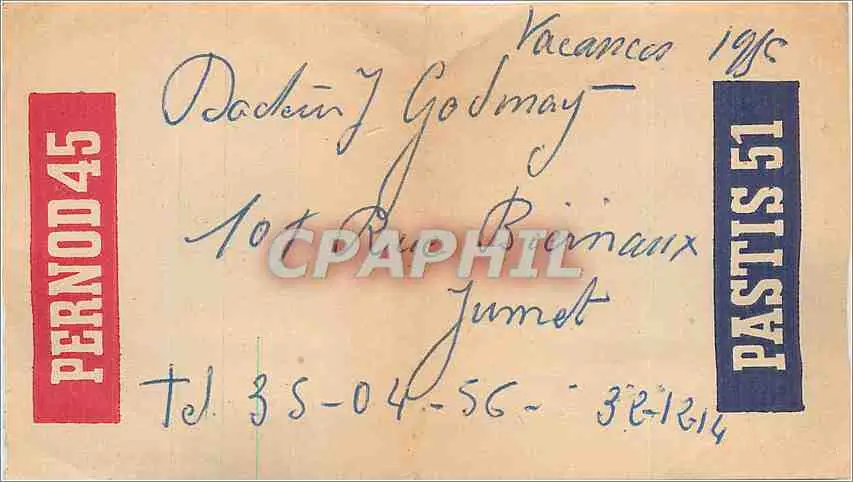 Vacances
Docteur J Godmay
PERNOD 45
PASTIS 51
101 Rue Biernaux
CPAPHIL
Jumet
Tel. 35-04-56- 32-12-14